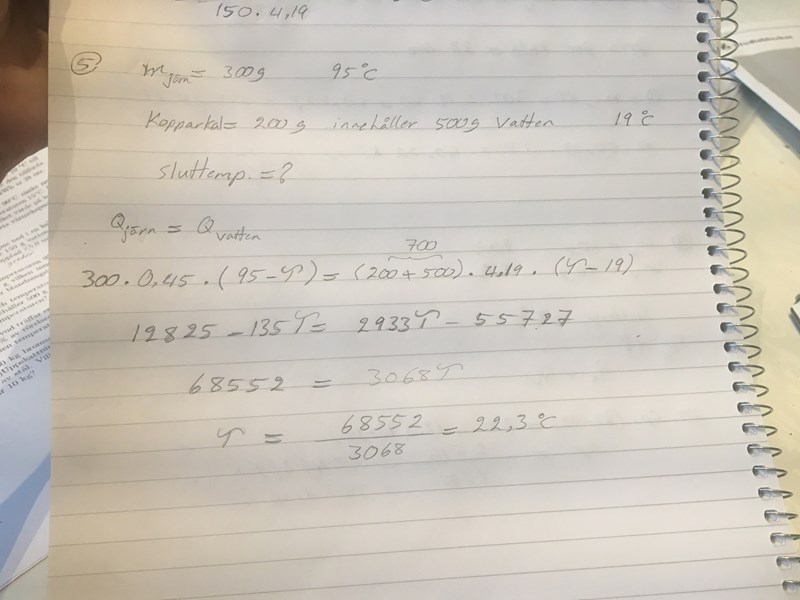 150 · 4,19
⑤ m järn = 300g 95°C
Kopparkal= 200 g innehåller 500g Vatten 19°C
sluttemp. = ?
Qjärn = Qvatten
700
300 · 0,45 · (95-T) = (200+500) · 4,19 · (T-19)
12825 - 135T = 2933T - 55727
68552 = 3068T
T = 68552 / 3068 = 22,3°C